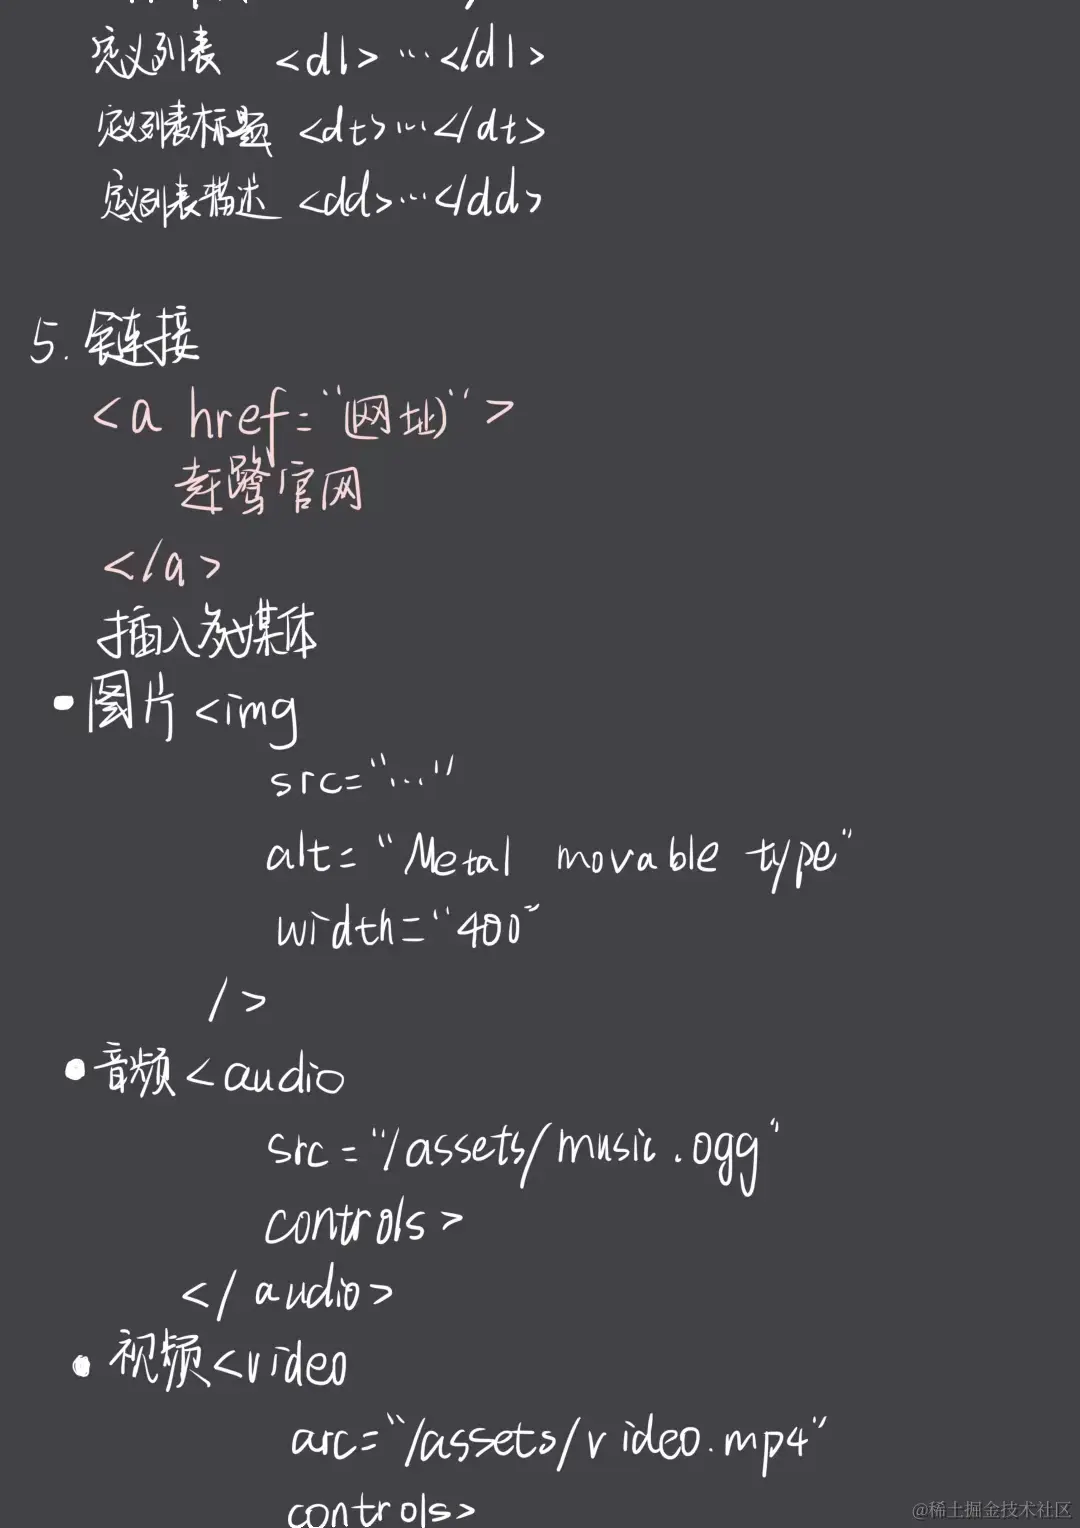 定义列表 <dl>…</dl>
定义列表标题 <dt>…</dt>
定义列表描述 <dd>…</dd>
5. 链接
<a href="(网址)">
官网
</a>
插入多媒体
• 图片 <img
src="..."
alt="Metal movable type"
width="400"
/>
• 音频 <audio
src="/assets/music.ogg"
controls>
</audio>
• 视频 <video
arc="/assets/video.mp4"
controls>
@稀土掘金技术社区